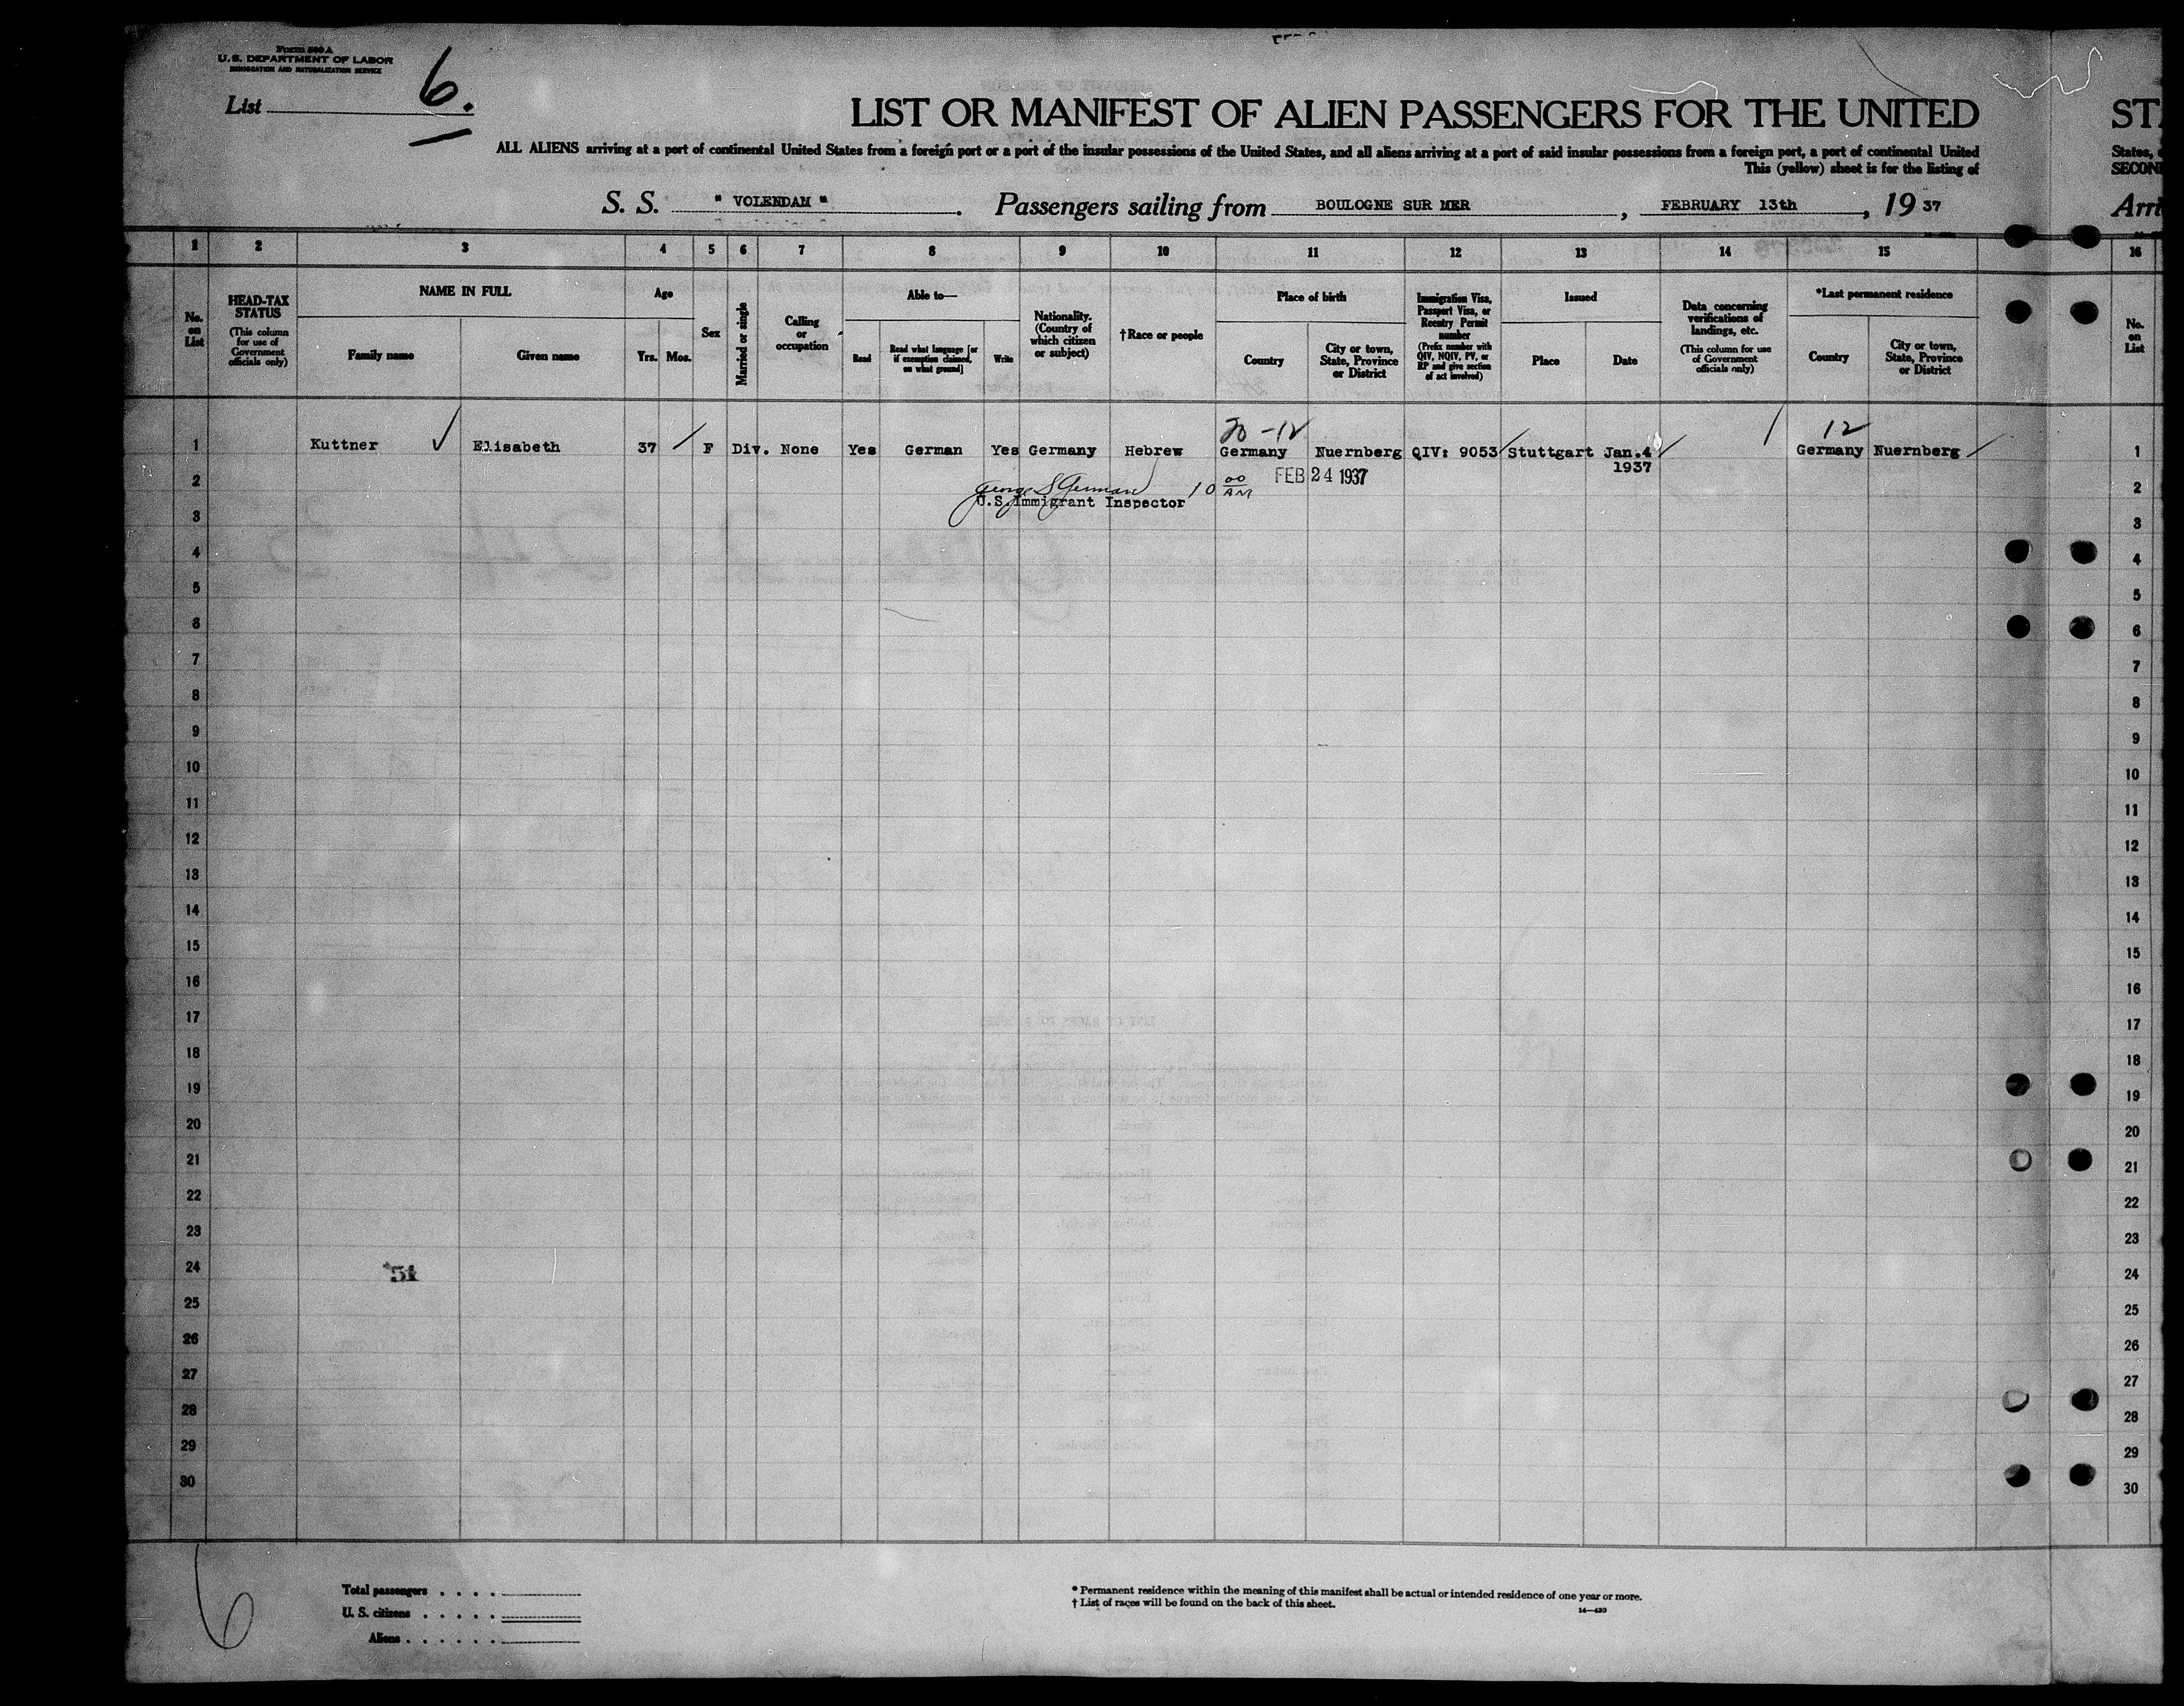 Form 500 A
U.S. DEPARTMENT OF LABOR
IMMIGRATION AND NATURALIZATION SERVICE
List 6.
LIST OR MANIFEST OF ALIEN PASSENGERS FOR THE UNITED
STA
ALL ALIENS arriving at a port of continental United States from a foreign port or a port of the insular possessions of the United States, and all aliens arriving at a port of said insular possessions from a foreign port, a port of continental United
States,
This (yellow) sheet is for the listing of
SECON
S. S. " VOLENDAM ". Passengers sailing from BOULOGNE SUR MER, FEBRUARY 13th, 19 37
Arri
1 2 3 4 5 6 7 8 9 10 11 12 13 14 15 16
No. on List
HEAD-TAX STATUS
(This column for use of Government officials only)
NAME IN FULL
Family name
Given name
Age
Yrs. Mos.
Sex
Married or single
Calling or occupation
Able to—
Read
Read what language [or if exemption claimed, on what ground]
Write
Nationality. (Country of which citizen or subject)
†Race or people
Place of birth
Country
City or town, State, Province or District
Immigration Visa, Passport Visa, or Reentry Permit number
(Prefix number with QIV, NQIV, PV, or RP and give section of act involved)
Issued
Place
Date
Data concerning verifications of landings, etc.
(This column for use of Government officials only)
*Last permanent residence
Country
City or town, State, Province or District
No. on List
-12
12
1 Kuttner Elisabeth 37 F Div. None Yes German Yes Germany Hebrew Germany Nuernberg QIV: 9053 Stuttgart Jan.4 Germany Nuernberg 1
1937
George S German 10 00 AM FEB 24 1937
U.S. Immigrant Inspector
2 2
3 3
4 4
5 5
6 6
7 7
8 8
9 9
10 10
11 11
12 12
13 13
14 14
15 15
16 16
17 17
18 18
19 19
20 20
21 21
22 22
23 23
24 51 24
25 25
26 26
27 27
28 28
29 29
30 30
6
Total passengers . . . .
U. S. citizens . . . . .
Aliens . . . . . .
* Permanent residence within the meaning of this manifest shall be actual or intended residence of one year or more.
† List of races will be found on the back of this sheet.
14—430